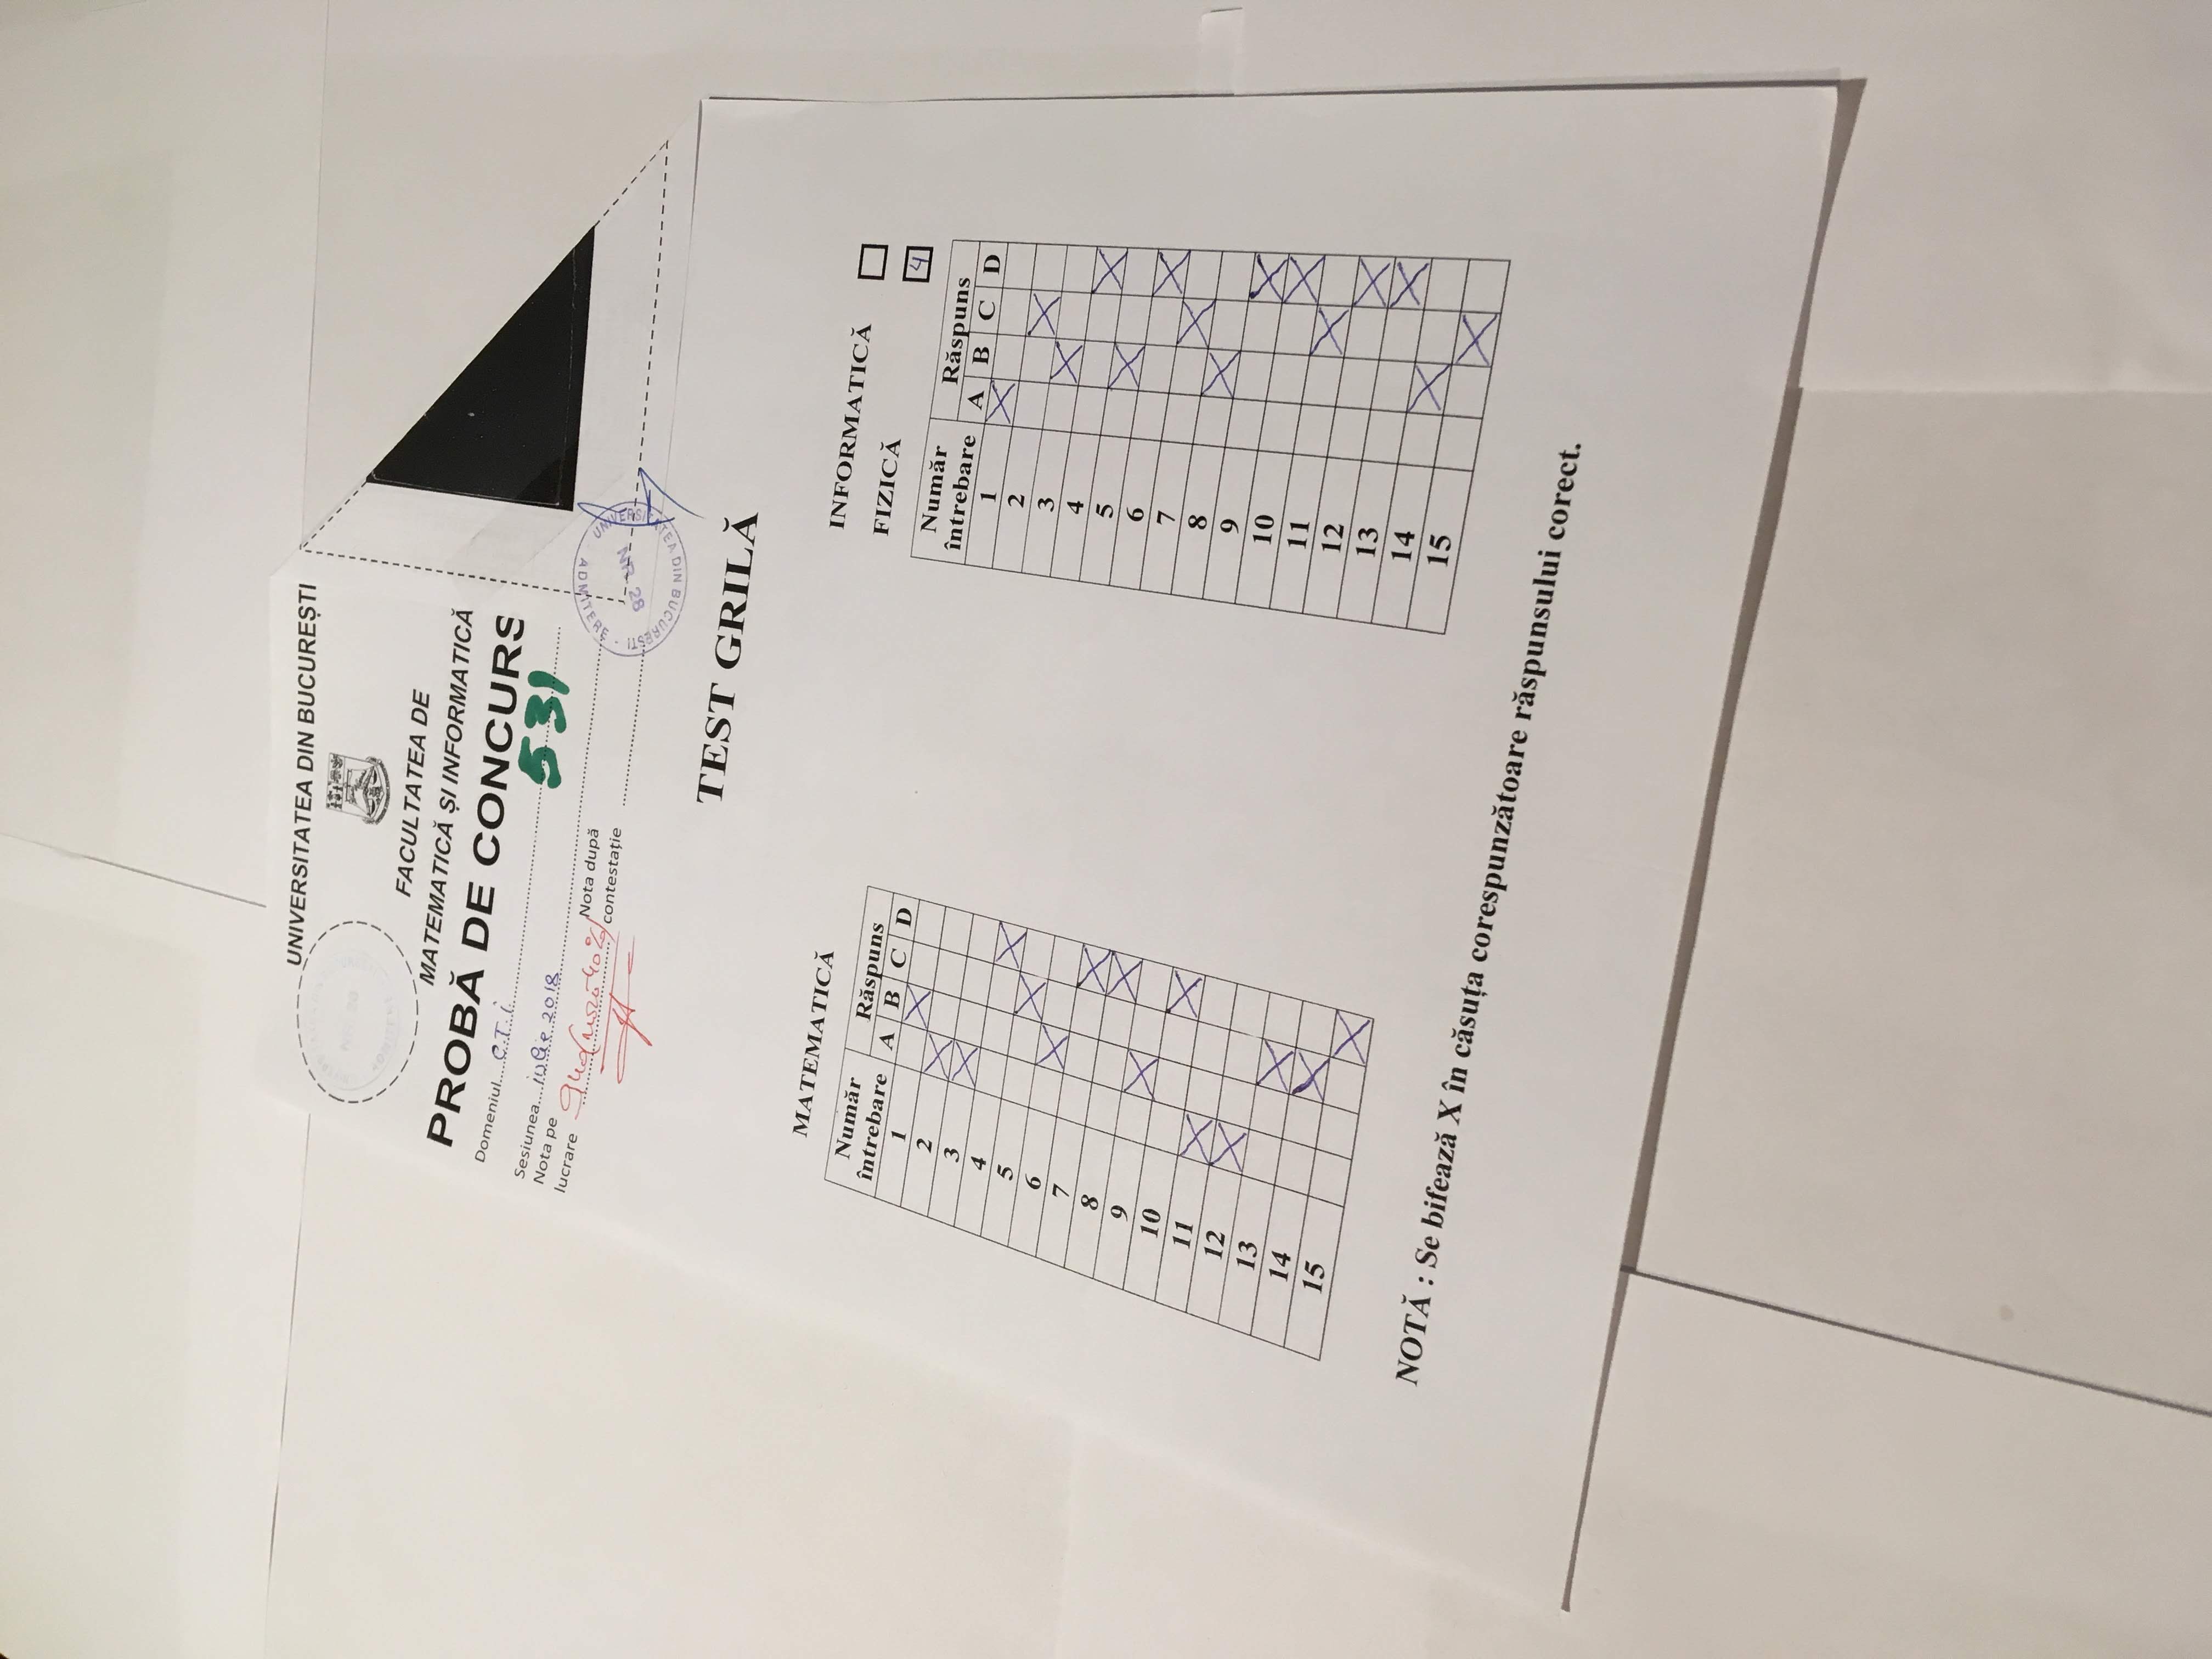 UNIVERSITATEA DIN BUCUREȘTI
FACULTATEA DE
MATEMATICĂ ȘI INFORMATICĂ
PROBĂ DE CONCURS
Domeniul C.T.i.
531
Sesiunea iulie 2018
Nota pe
lucrare
Nota după
contestație
UNIVERSITATEA DIN BUCUREȘTI · ADMITERE ·
NR 28
TEST GRILĂ
MATEMATICĂ
Număr
întrebare
Răspuns
A B C D
1 X
2 X
3 X
4
5 X
6 X
7 X
8 X
9 X
10 X
11 X
12 X
13 X
14 X
15 X
INFORMATICĂ
FIZICĂ 4
Număr
întrebare
Răspuns
A B C D
1 X
2 X
3 X
4 X
5 X
6 X
7 X
8 X
9 X
10 X
11 X
12 X
13 X
14 X
15 X
NOTĂ : Se bifează X în căsuța corespunzătoare răspunsului corect.